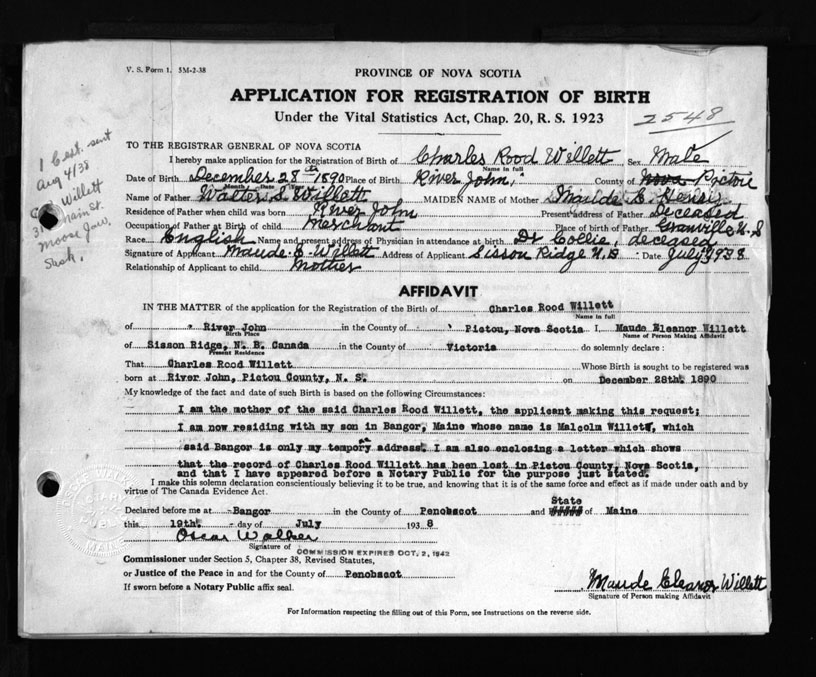 V. S. Form 1. 5M-2-38
PROVINCE OF NOVA SCOTIA
APPLICATION FOR REGISTRATION OF BIRTH
Under the Vital Statistics Act, Chap. 20, R. S. 1923
2548
1 Cert. sent
Aug 4/38
Willett
Main St.
Moose Jaw,
Sask.
TO THE REGISTRAR GENERAL OF NOVA SCOTIA
I hereby make application for the Registration of Birth of Charles Rood Willett Sex Male
Name in full
Date of Birth December 28th 1890 Place of Birth River John, County of Nova Pictou
Month Date
Name of Father Walter S. Willett MAIDEN NAME of Mother Maude E.
Residence of Father when child was born River John Present address of Father Deceased
Occupation of Father at Birth of child Merchant Place of birth of Father Granville N. S
Race English Name and present address of Physician in attendance at birth Dr Collie, deceased
Signature of Applicant Maude E. Willett Address of Applicant Sisson Ridge N.B Date July 1938
Relationship of Applicant to child Mother
AFFIDAVIT
IN THE MATTER of the application for the Registration of the Birth of Charles Rood Willett
Name in full
of River John in the County of Pictou, Nova Scotia I, Maude Eleanor Willett
Birth Place Name of Person Making Affidavit
of Sisson Ridge, N. B. Canada in the County of Victoria do solemnly declare:
Present Residence
That Charles Rood Willett Whose Birth is sought to be registered was
born at River John, Pictou County, N. S. on December 28th. 1890
My knowledge of the fact and date of such Birth is based on the following Circumstances:
I am the mother of the said Charles Rood Willett, the applicant making this request;
I am now residing with my son in Bangor, Maine whose name is Malcolm Willett, which
said Bangor is only my temporary address. I am also enclosing a letter which shows
that the record of Charles Rood Willett has been lost in Pictou County, Nova Scotia,
and that I have appeared before a Notary Public for the purpose just stated.
I make this solemn declaration conscientiously believing it to be true, and knowing that it is of the same force and effect as if made under oath and by
virtue of The Canada Evidence Act.
State
Declared before me at Bangor in the County of Penobscot and of Maine
this 19th. day of July 1938
Oscar Walker
Signature of
COMMISSION EXPIRES OCT. 2, 1942
Commissioner under Section 5, Chapter 38, Revised Statutes,
or Justice of the Peace in and for the County of Penobscot
If sworn before a Notary Public affix seal.
Maude Eleanor Willett
Signature of Person making Affidavit
For Information respecting the filling out of this Form, see Instructions on the reverse side.